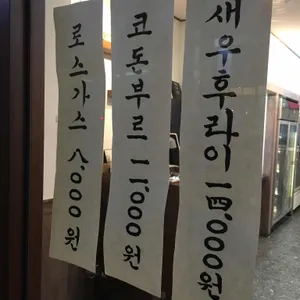 로스가스 八,000원
코돈부르 一一,000원
새우후라이 一四,000원